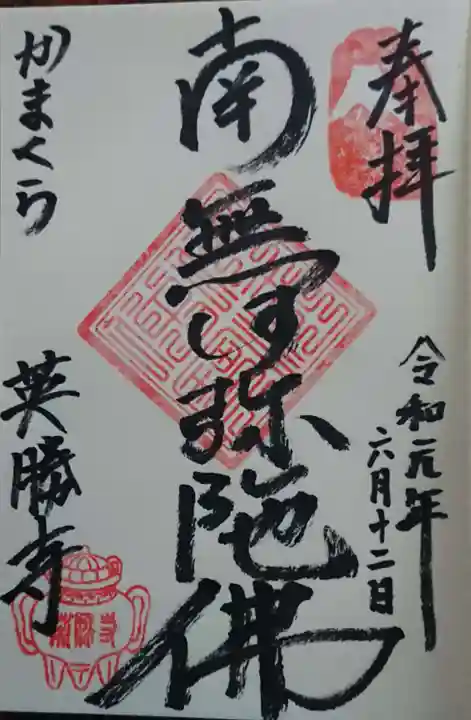 奉拝
令和元年
六月十二日
南無阿弥陀佛
かまくら
英勝寺